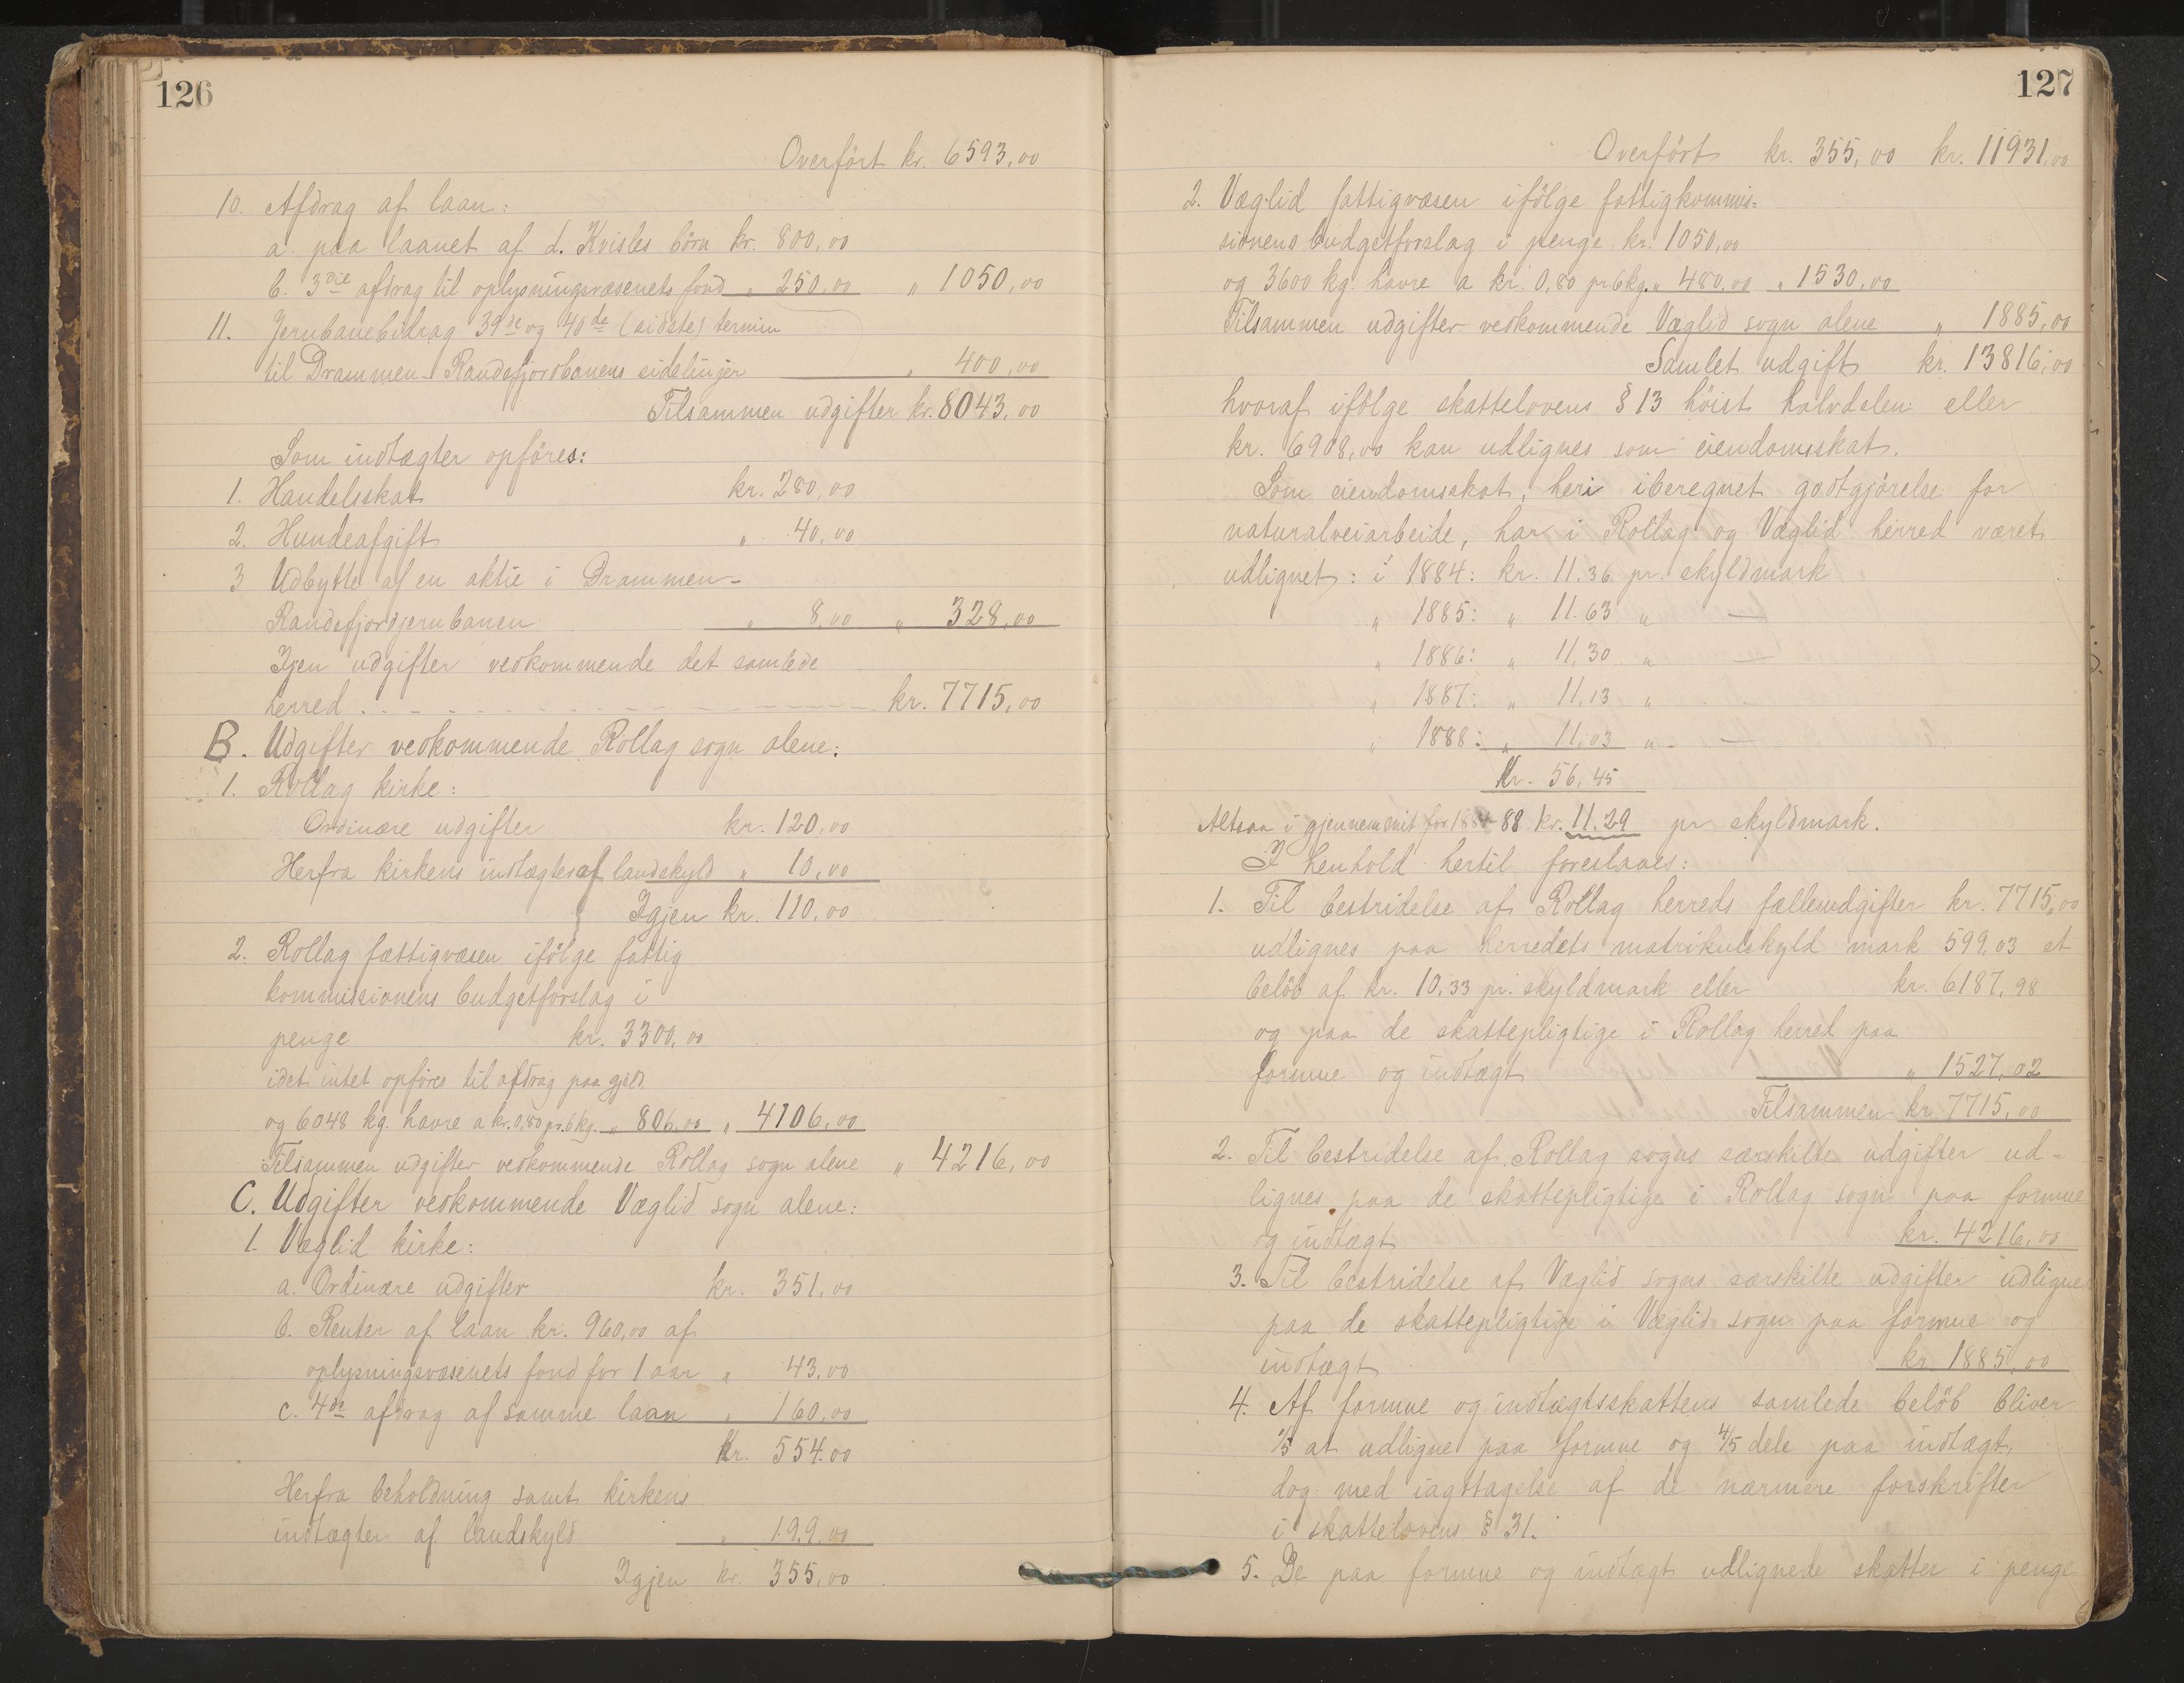 126
Overført kr. 6593,00
10. Afdrag af laan:
a. paa laanet af L. Kvisles børn kr. 800,00
b. 3die afdrag til oplysningsvæsenets fond " 250,00 " 1050,00
11. Jernbanebidrag 39de og 40de (sidste) termin
til Drammen-Randsfjordbanens sidelinjer " 400,00
Tilsammen udgifter kr. 8043,00
Som indtægter opføres:
1. Handelsskat kr. 280,00
2. Hundeafgift " 40,00
3 Udbytte af en aktie i Drammen-
Randsfjordjernbanen " 8,00 " 328,00
Igjen udgifter vedkommende det samlede
herred kr. 7715,00
B. Udgifter vedkommende Rollag sogn alene:
1. Rollag kirke:
Ordinære udgifter kr. 120,00
Herfra kirkens indtægter af landskyld " 10,00
Igjen kr. 110,00
2. Rollag fattigvæsen ifølge fattig
kommissionens budgetforslag i
penge kr. 3300,00
idet intet opføres til afdrag paa gjæld
og 6048 kg. havre a kr. 0,80 pr. 6 kg. " 806,00 " 4106,00
Tilsammen udgifter vedkommende Rollag sogn alene " 4216,00
C. Udgifter vedkommende Væglid sogn alene:
1. Væglid kirke:
a. Ordinære udgifter kr. 351,00
b. Renter af laan kr. 960,00 af
oplysningsvæsenets fond for 1 aar " 43,00
c. 4de afdrag af samme laan " 160,00
Kr. 554.00
Herfra beholdning samt kirkens
indtægter af landskyld " 199,00
Igjen kr. 355,00
127
Overført kr. 355,00 kr. 11931,00
2. Væglid fattigvæsen ifølge fattigkommis=
sionens budgetforslag i penge kr. 1050,00
og 3600 kg. havre a kr. 0,80 pr 6 kg. " 480,00 " 1530,00
Tilsammen udgifter vedkommende Væglid sogn alene " 1885,00
Samlet udgift kr. 13816,00
hvoraf ifølge skattelovens § 13 høist halvdelen eller
kr. 6908,00 kan udlignes som eiendomsskat.
Som eiendomsskat, heri iberegnet godtgjørelse for
naturalveiarbeide, har i Rollag og Væglid herred været
udlignet: i 1884: kr. 11.36 pr. skyldmark
" 1885: " 11.63 " —
" 1886: " 11,30 " —
" 1887: " 11,13 " —
" 1888: " 11,03 " —
Kr. 56,45
Altsaa i gjennemsnit for 1884-88 kr. 11.29 pr skyldmark.
I henhold hertil foreslaaes:
1. Til bestridelse af Rollag herreds fællesudgifter kr. 7715,00
udlignes paa herredets matrikulskyld mark 599,03 et
beløb af kr. 10,33 pr. skyldmark eller kr. 6187,98
og paa de skattepligtige i Rollag herred paa
formue og indtægt " 1527,02
Tilsammen kr. 7715,00
2. Til bestridelse af Rollag sogns særskilte udgifter ud-
lignes paa de skattepligtige i Rollag sogn paa formue
og indtægt kr. 4216,00
3. Til bestridelse af Væglid sogns særskilte udgifter udlignes
paa de skattepligtige i Væglid sogn paa formue og
indtægt kr. 1885,00
4. Af formue og indtægtsskattens samlede beløb bliver
1/5 at udligne paa formue og 4/5 dele paa indtægt,
dog med iagttagelse af de nærmere forskrifter
i skattelovens § 31.
5. De paa formue og indtægt udlignede skatter i penge